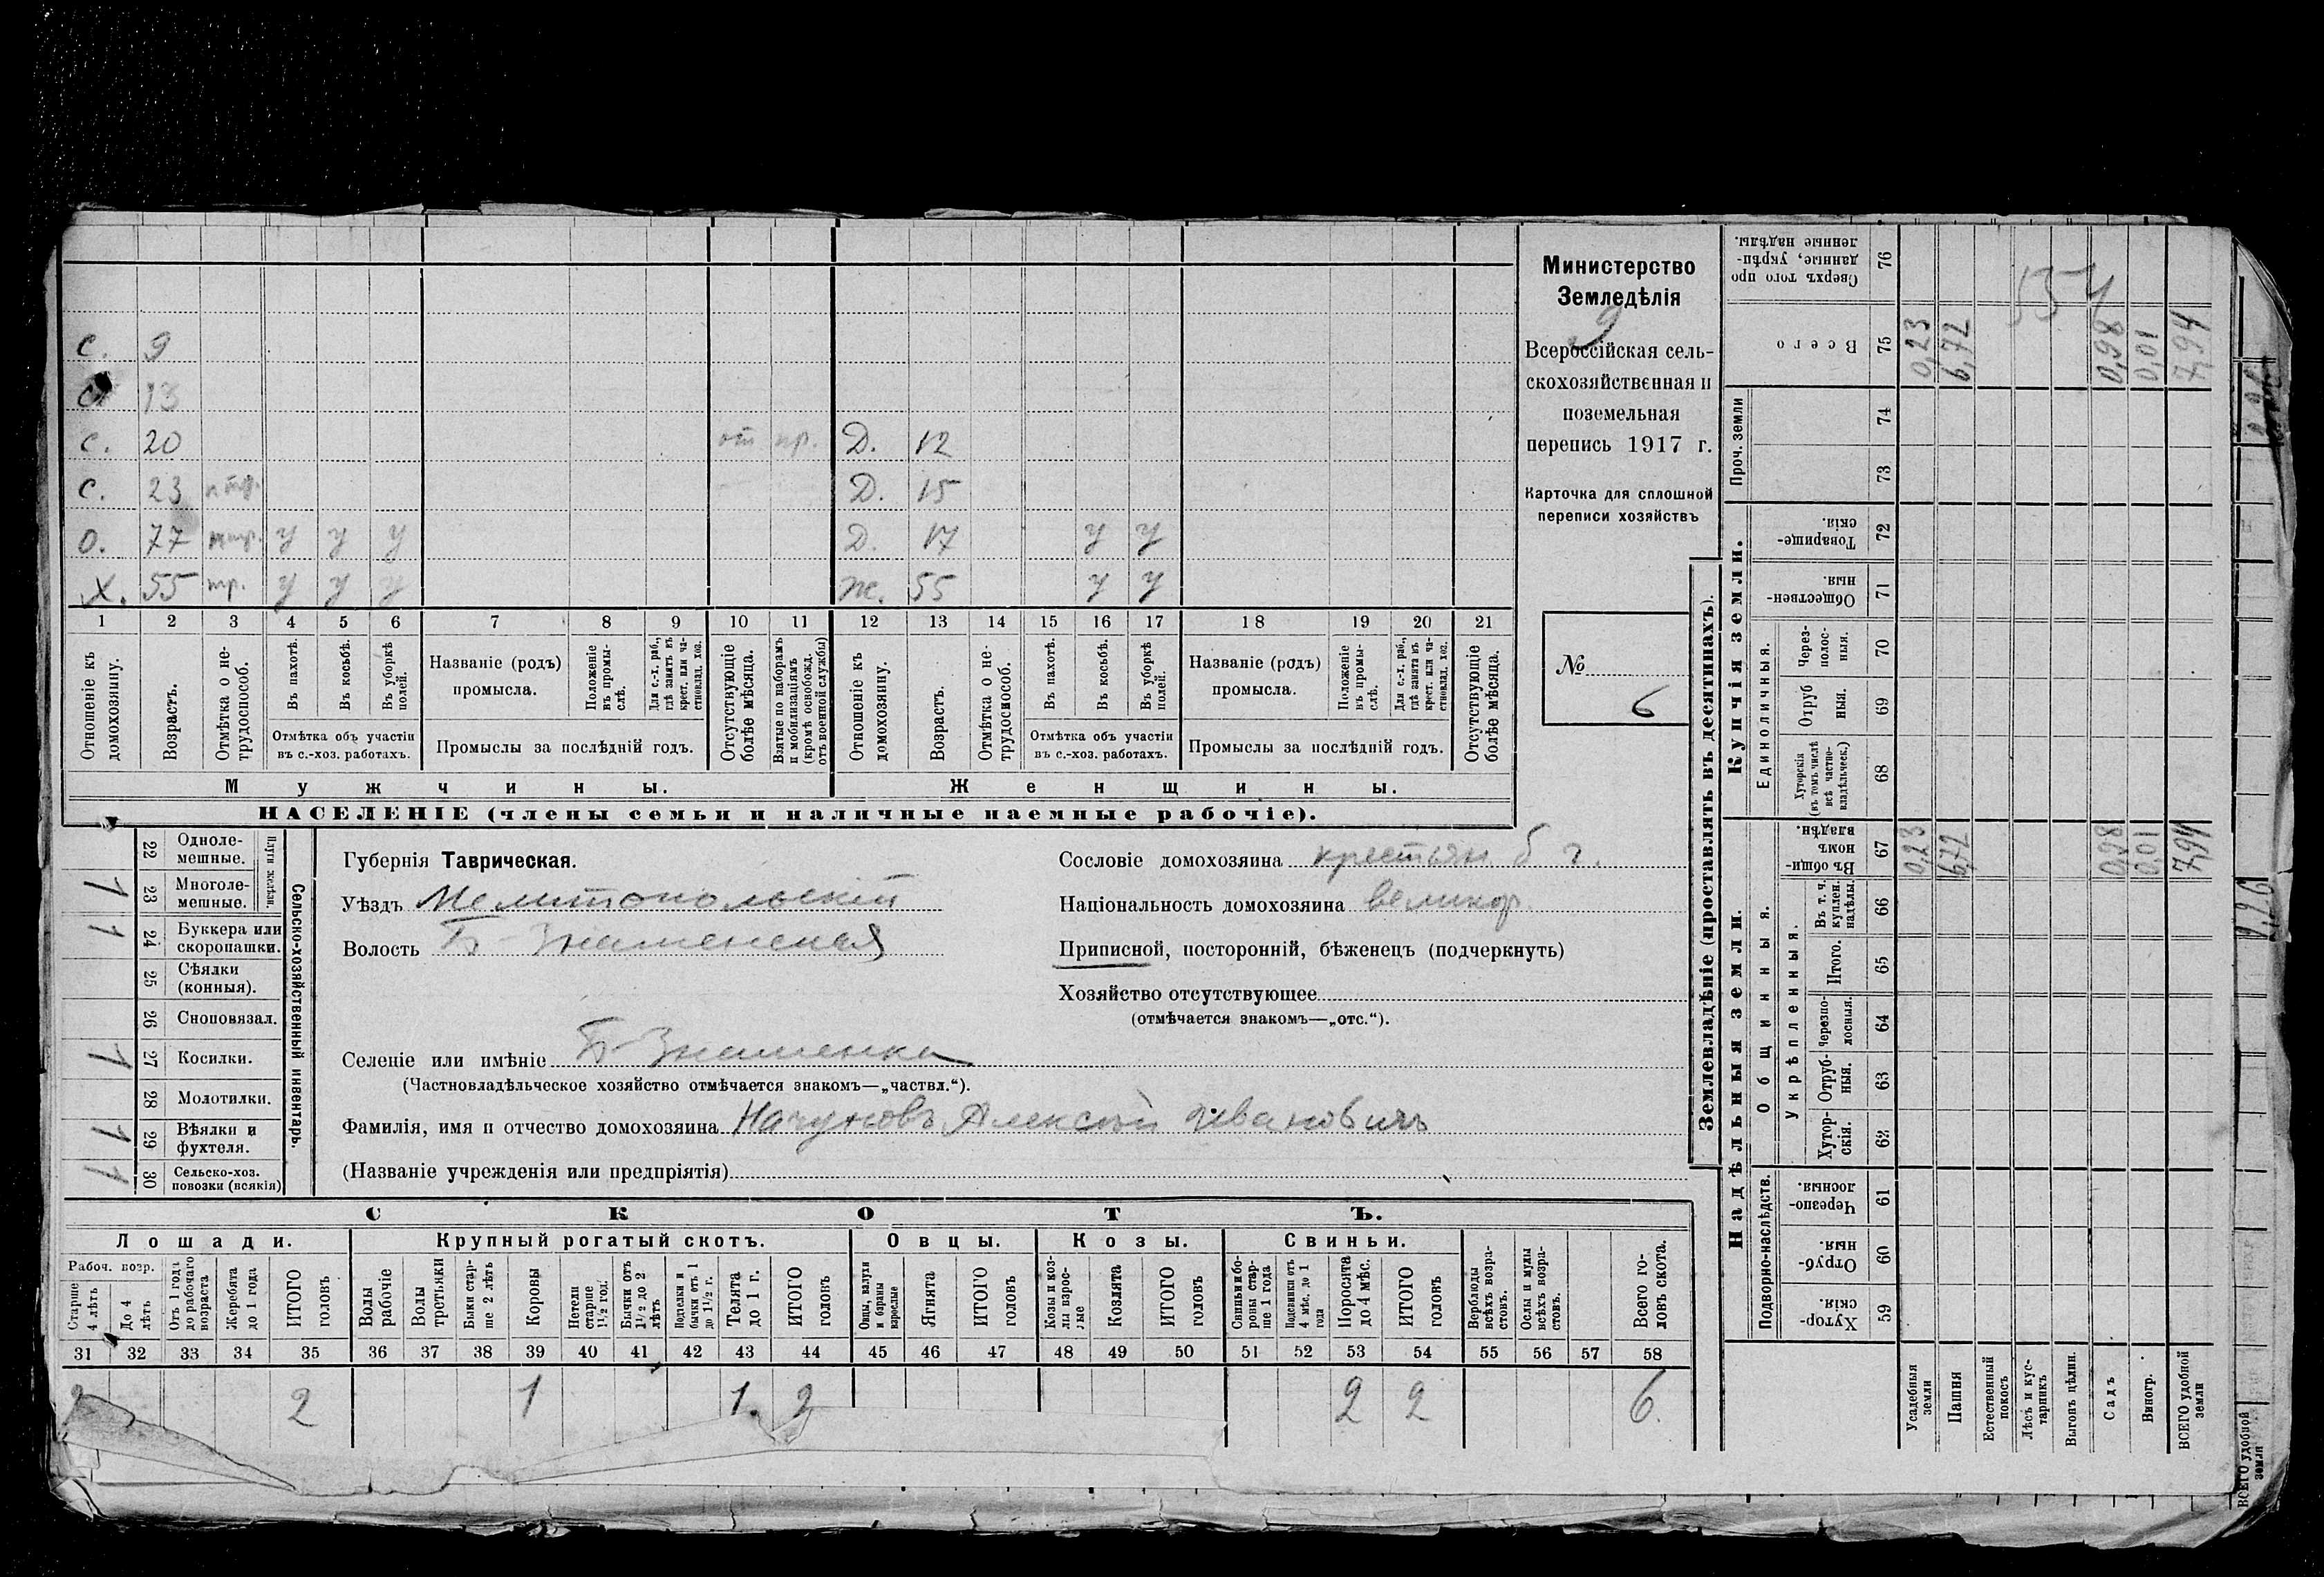 Министерство
Земледѣлія
9
Всероссійская сель-
скохозяйственная и
поземельная
перепись 1917 г.
Карточка для сплошной
переписи хозяйствъ
№
6
с. 9
с. 13
с. 20 от пр. Д. 12
с. 23 Д. 15
о. 77 у у у Д. 17 у у
х. 55 тр. у у у ж. 55 у у
1 2 3 4 5 6 7 8 9 10 11 12 13 14 15 16 17 18 19 20 21
Отношеніе къ домохозяину.
Возрастъ.
Отмѣтка о не-трудоспособ.
Въ пахотѣ.
Въ косьбѣ.
Въ уборкѣ полей.
Отмѣтка объ участіи
въ с.-хоз. работахъ.
Названіе (родъ)
промысла.
Положеніе въ промы-слѣ.
Для с.-х. раб., гдѣ занятъ въ крест. или ча-стновлад. хоз.
Промыслы за послѣдній годъ.
Отсутствующіе болѣе мѣсяца.
Взятые по наборамъ и мобилизаціямъ (кромѣ освобожд. отъ военной службы)
Отношеніе къ домохозяину.
Возрастъ.
Отмѣтка о не-трудоспособ.
Въ пахотѣ.
Въ косьбѣ.
Въ уборкѣ полей.
Отмѣтка объ участіи
въ с.-хоз. работахъ.
Названіе (родъ)
промысла.
Положеніе въ промы-слѣ.
Для с.-х. раб., гдѣ занята въ крест. или ча-стновлад. хоз.
Промыслы за послѣдній годъ.
Отсутствующіе болѣе мѣсяца.
Мужчины. Женщины.
НАСЕЛЕНІЕ (члены семьи и наличные наемные рабочіе).
Сельско-хозяйственный инвентарь.
Плуги желѣзн.
22 Одноле-мешные.
1 23 Многоле-мешные.
1 24 Буккера или скоропашки.
25 Сѣялки (конныя).
26 Сноповязал.
1 27 Косилки.
28 Молотилки.
1 29 Вѣялки и фухтеля.
1 30 Сельско-хоз. повозки (всякія)
Губернія Таврическая.
Уѣздъ Мелитопольскій
Волость Б-Знаменская
Селеніе или имѣніе Б-Знаменка
(Частновладѣльческое хозяйство отмѣчается знакомъ—„частвл.“).
Фамилія, имя и отчество домохозяина Начуновъ Алексѣй Ивановичъ
(Названіе учрежденія или предпріятія)
Сословіе домохозяина крестьян.
Національность домохозяина великор.
Приписной, посторонній, бѣженецъ (подчеркнуть)
Хозяйство отсутствующее
(отмѣчается знакомъ—„отс.“).
СКОТЪ.
Лошади. Крупный рогатый скотъ. Овцы. Козы. Свиньи.
Рабоч. возр.
Старше 4 лѣтъ
До 4 лѣтъ
Отъ 1 года до рабочаго возраста
Жеребята до 1 года
ИТОГО головъ
Волы рабочіе
Волы третьяки
Быки стар-ше 2 лѣтъ
Коровы
Нетели старше 1½ год.
Бычки отъ 1½ до 2 лѣтъ
Подтелки и бычки отъ 1 до 1½ г.
Телята до 1 г.
ИТОГО головъ
Овцы, валухи и бараны взрослые
Ягнята
ИТОГО головъ
Козы и коз-лы взрос-лые
Козлята
ИТОГО головъ
Свиньи и бо-ровы стар-ше 1 года
Подсвинки отъ 4 мѣс. до 1 года
Поросята до 4 мѣс.
ИТОГО головъ
Верблюды всѣхъ возра-стовъ.
Ослы и мулы всѣхъ возра-стовъ.
Всего го-ловъ скота.
31 32 33 34 35 36 37 38 39 40 41 42 43 44 45 46 47 48 49 50 51 52 53 54 55 56 57 58
2 2 1 1. 2 2 2 6.
Землевладѣніе (проставлять въ десятинахъ).
Надѣльныя земли. Купчія земли. Проч. земли
Подворно-наслѣдств. Общинныя. Укрѣпленныя. Единоличныя.
Хутор-скія. 59
Отруб-ныя. 60
Черезпо-лосныя. 61
Хутор-скія. 62
Отруб-ныя. 63
Черезпо-лосныя. 64
Итого. 65
Въ т. ч. куплен. надѣлы. 66
Въ общин-номъ владѣн. 67
Хуторскія (въ томъ числѣ всѣ частно-владѣльческ.) 68
Отруб-ныя. 69
Через-полос-ныя. 70
Обществен-ныя. 71
Товарище-скія. 72
73
74
Всего 75
Сверхъ того про-данные, укрѣп-ленные надѣлы. 76
Усадебныя земли 0,23 0,23
Пашня 6,72 6,72
Естественный покосъ
Лѣсъ и кус-тарникъ
Выгонъ цѣлин.
Садъ 0,98 0,98
Виногр. 0,01 0,01
ВСЕГО удобной земли 7,94 7,94
554
ВСЕГО удобной земли